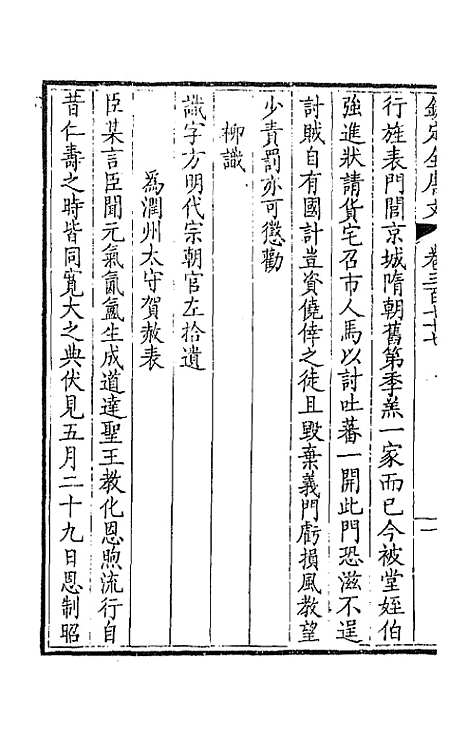 欽定全唐文 卷三百七十七 一
行旌表門閭京城隋朝舊第季羔一家而已今被堂姪伯
強進狀請貨宅召市人馬以討吐蕃一開此門恐滋不逞
討賊自有國計豈資僥倖之徒且毀棄義門虧損風教望
少責罰亦可懲勸
柳識
識字方明代宗朝官左拾遺
為潤州太守賀赦表
臣某言臣聞元氣氤氳生成道達聖王教化恩煦流行自
昔仁壽之時皆同寬大之典伏見五月二十九日恩制昭